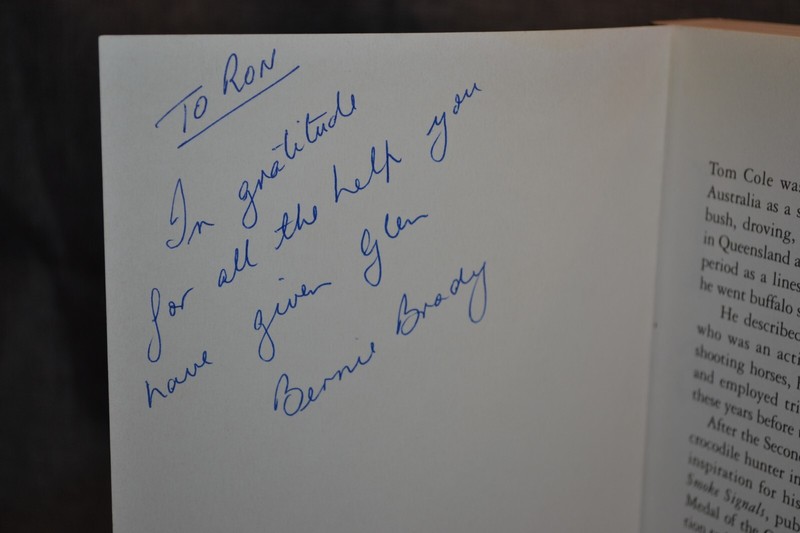 TO RON
In gratitude
for all the help you
have given Glen
Bernie Brady
Tom Cole was
Australia as a s
bush, droving,
in Queensland a
period as a lines
he went buffalo s
He described
who was an acti
shooting horses, h
and employed tri
these years before
After the Second
crocodile hunter in
inspiration for his
Smoke Signals, pub
Medal of the